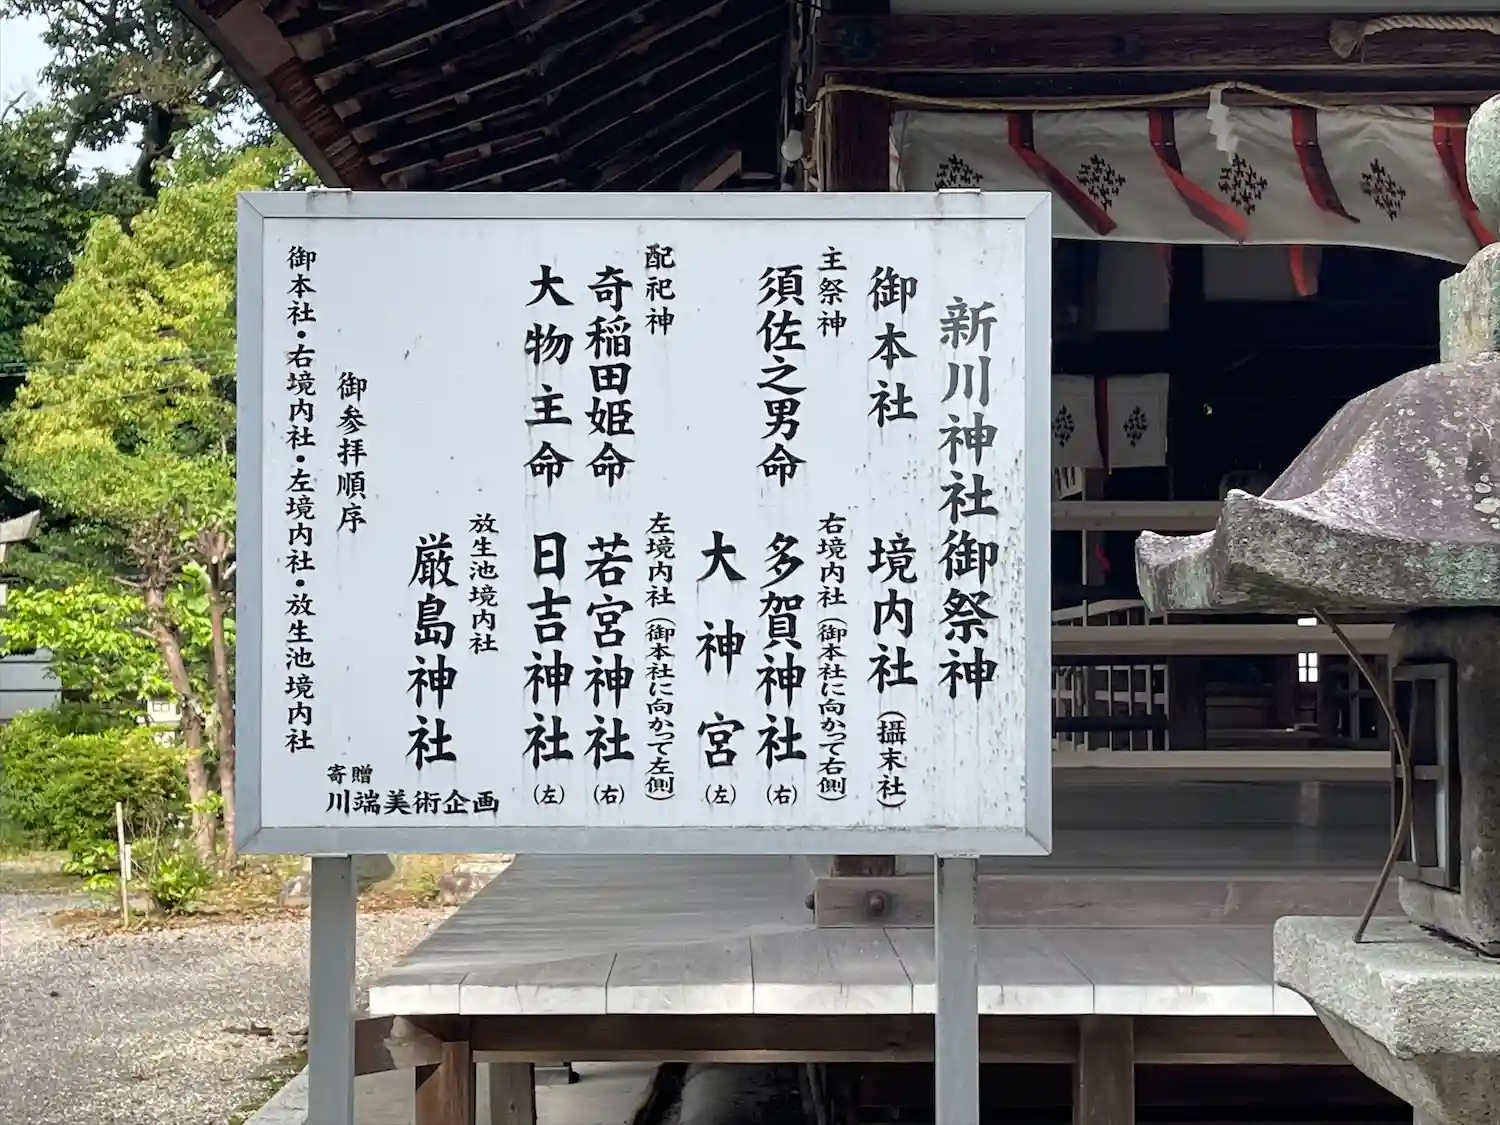 新川神社御祭神
御本社
境内社（攝末社）
主祭神
右境内社（御本社に向かって右側）
須佐之男命
多賀神社（右）
大神宮（左）
配祀神
左境内社（御本社に向かって左側）
奇稲田姫命
若宮神社（右）
大物主命
日吉神社（左）
放生池境内社
厳島神社
御参拝順序
御本社・右境内社・左境内社・放生池境内社
寄贈
川端美術企画